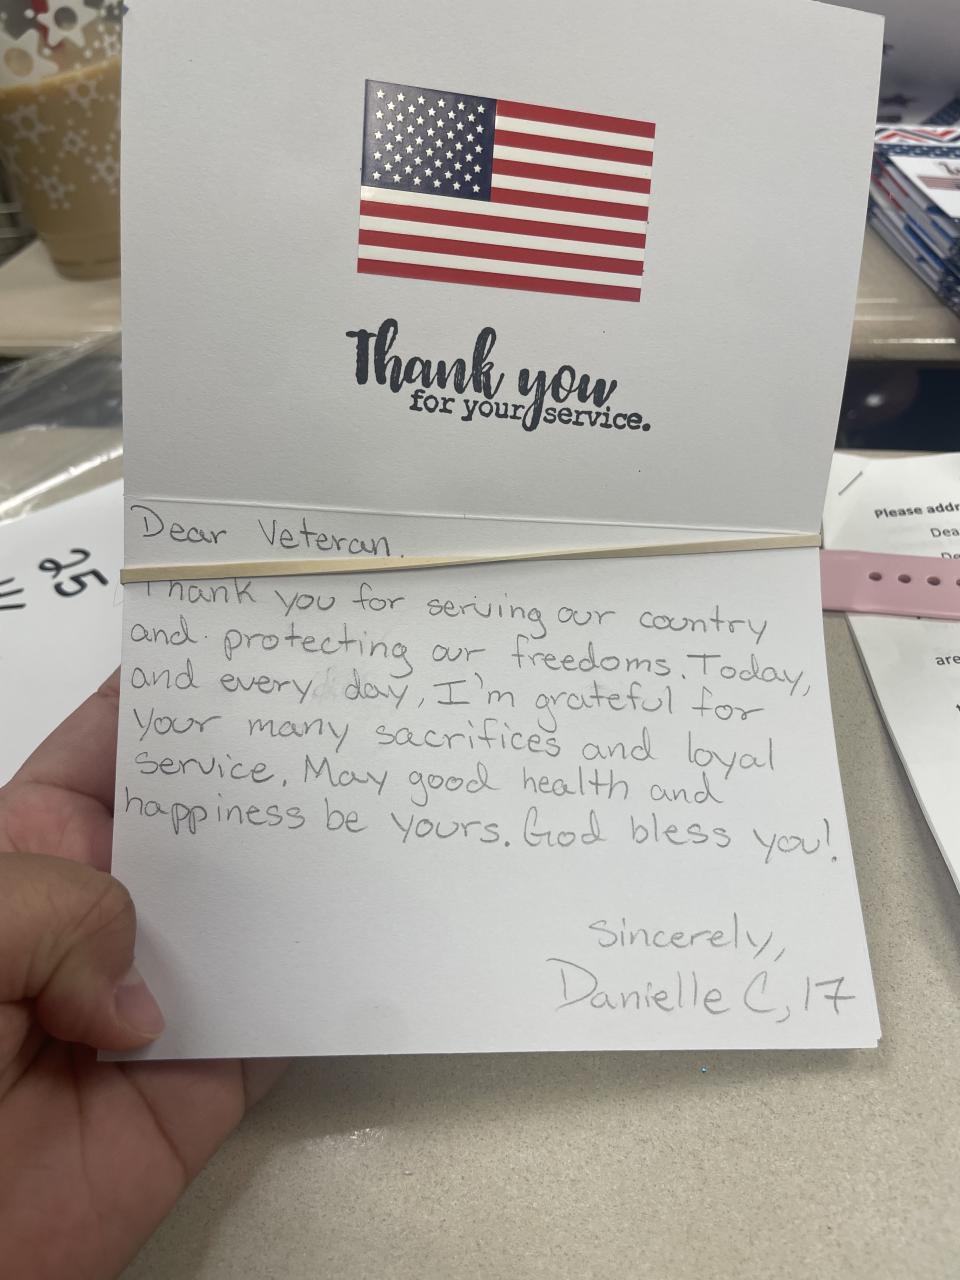 Thank you
for your service.
Dear Veteran,
Thank you for serving our country
and protecting our freedoms. Today,
and every day, I'm grateful for
your many sacrifices and loyal
service. May good health and
happiness be yours. God bless you!
Sincerely,
Danielle C, 17
25
Please addr
Dea
are